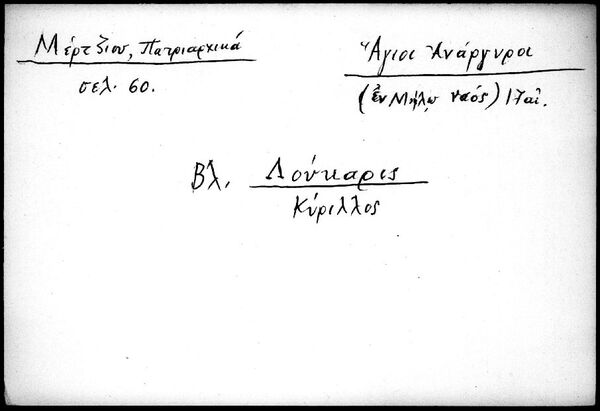 Μέρτζιου, Πατριαρχικά
σελ. 60.
Ἅγιοι Ἀνάργυροι
(ἐν Μήλῳ ναός) 17 αἰ.
Βλ. Λούκαρις
Κύριλλος